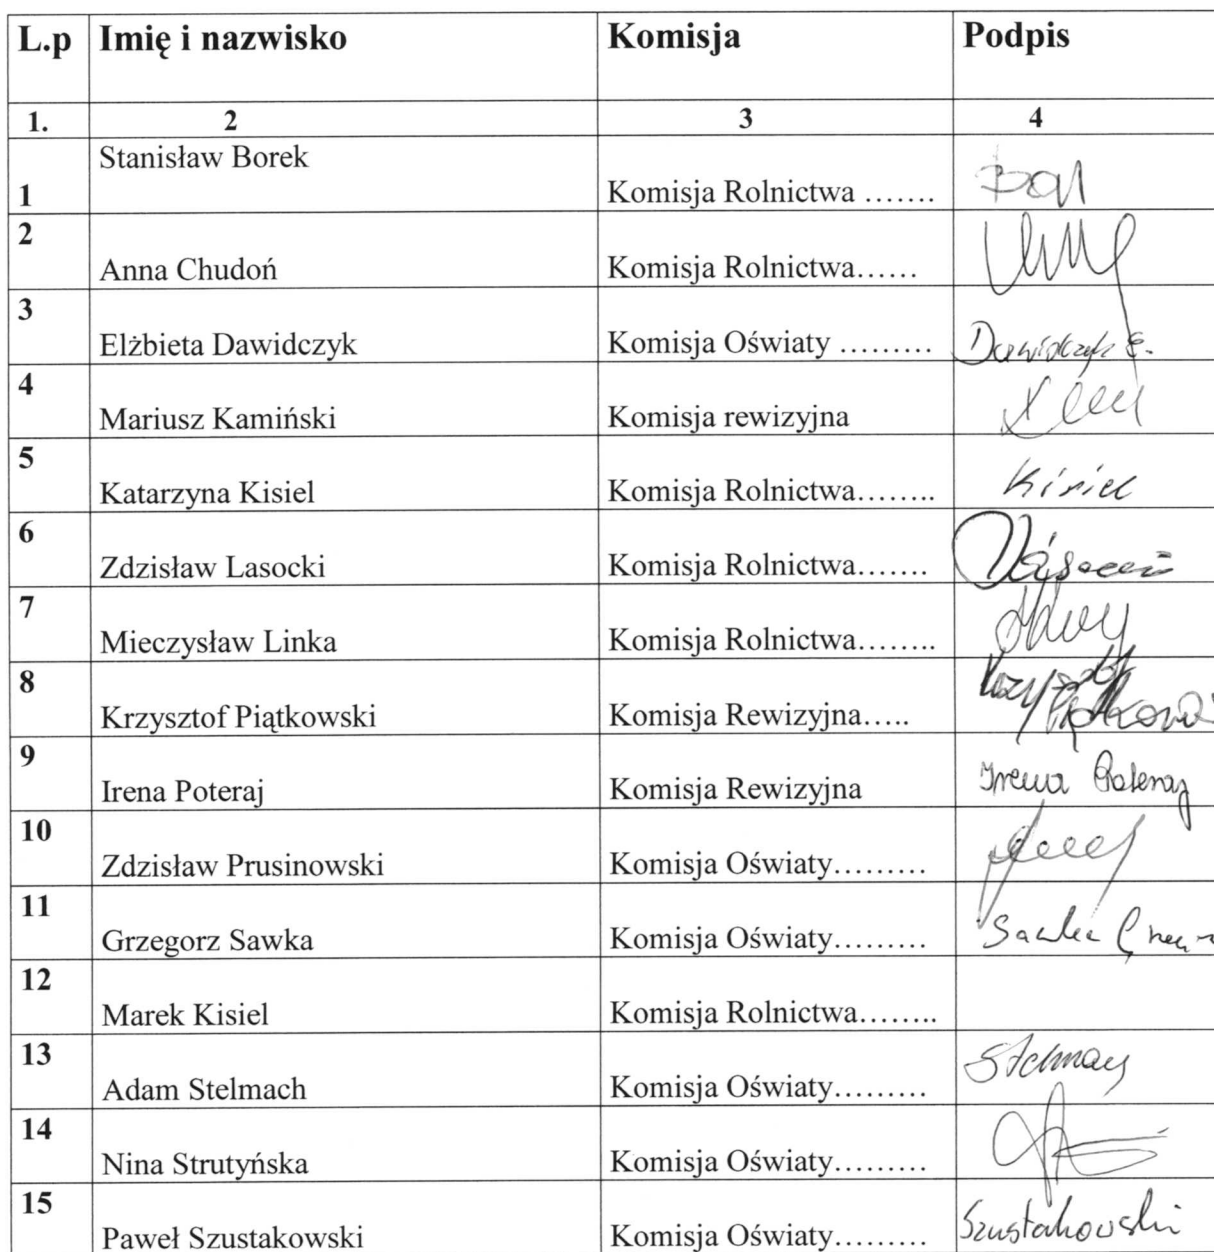 L.p Imię i nazwisko Komisja Podpis
1. 2 3 4
Stanisław Borek
1 Komisja Rolnictwa …….
2
Anna Chudoń Komisja Rolnictwa……
3
Elżbieta Dawidczyk Komisja Oświaty ……… Dawidczyk E.
4
Mariusz Kamiński Komisja rewizyjna
5
Katarzyna Kisiel Komisja Rolnictwa…….. Kisiel
6
Zdzisław Lasocki Komisja Rolnictwa…….
7
Mieczysław Linka Komisja Rolnictwa……..
8
Krzysztof Piątkowski Komisja Rewizyjna….. Krzysztof Piątkowski
9
Irena Poteraj Komisja Rewizyjna Irena Poteraj
10
Zdzisław Prusinowski Komisja Oświaty………
11
Grzegorz Sawka Komisja Oświaty……… Sawka
12
Marek Kisiel Komisja Rolnictwa……..
13
Adam Stelmach Komisja Oświaty……… Stelmach
14
Nina Strutyńska Komisja Oświaty………
15
Paweł Szustakowski Komisja Oświaty……… Szustakowski